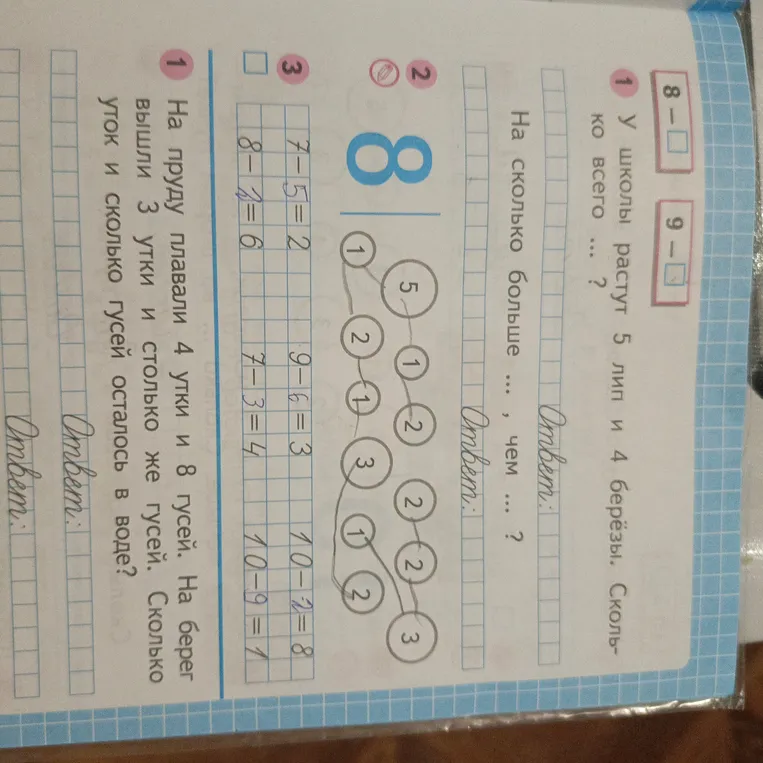 8 – 9 –
1 У школы растут 5 лип и 4 берёзы. Сколь-
ко всего ... ?
Ответ:
На сколько больше ... , чем ... ?
Ответ:
2 8 5 1 2 2 2 3
1 2 1 3 1 2
3 7–5=2 9–6=3 10–2=8
8–2=6 7–3=4 10–9=1
1 На пруду плавали 4 утки и 8 гусей. На берег
вышли 3 утки и столько же гусей. Сколько
уток и сколько гусей осталось в воде?
Ответ:
Ответ: